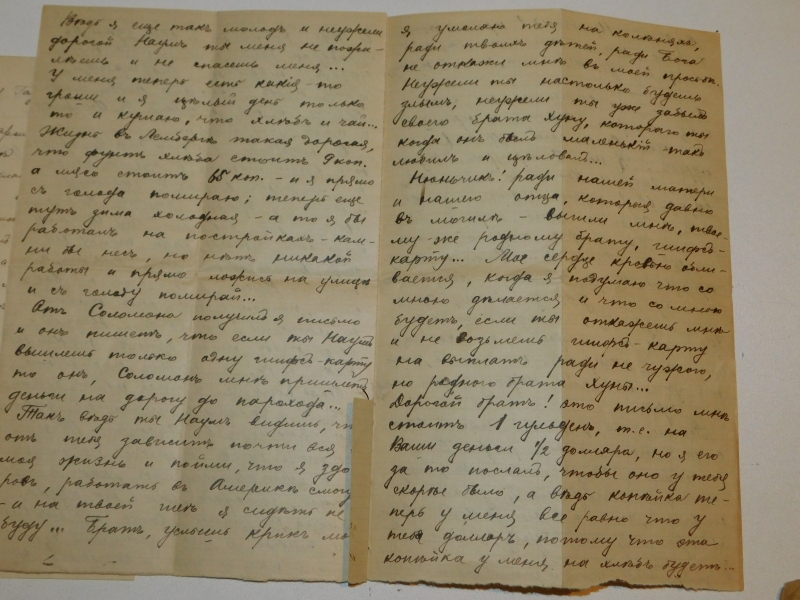 Вѣдь я еще такъ молодъ и неужели
дорогой Наумъ ты меня не пожа-
лѣешь и не спасешь меня...
У меня теперь есть какія то
гроши и я цѣлый день только
то и кушаю, что хлѣбъ и чай...
Жизнь въ Лембергѣ такая дорогая,
что фунтъ хлѣба стоитъ 9 коп.
а мясо стоитъ 65 коп. - и я прямо
съ голода помираю; теперь еще
тутъ зима холодная - а то я бы
работалъ на постройкахъ - кам-
ни бы несъ, но нѣтъ никакой
работы и прямо ложись на улицѣ
и съ голоду помирай...
Отъ Соломона получилъ я письмо
и онъ пишетъ, что если ты Наумъ
вышлешь только одну шифсъ-карту
то онъ, Соломонъ мнѣ пришлетъ
деньги на дорогу до парохода...
Такъ вѣдь ты Наумъ видишь, чт
отъ тебя зависитъ почти вся
моя жизнь и пойми, что я здо
ровъ, работать въ Америкѣ смогу
- и на твоей шеѣ я сидѣть не
буду... Братъ, услышь крикъ мо
я умоляю тебя на колѣняхъ,
ради твоихъ дѣтей, ради Бога
не откажи мнѣ въ моей просьбѣ.
Неужели ты настолько будешь
злымъ, неужели ты уже забылъ
своего брата Хуну, котораго ты
когда онъ былъ маленькій - такъ
любилъ и цѣловалъ...
Нюньчикъ! ради нашей матери
и нашего отца, которые давно
въ могилѣ - вышли мнѣ, твое-
му-же родному брату, шифсъ-
карту... Мое сердце кровью обли-
вается, когда я подумаю что со
мною дѣлается и что со мною
будетъ, если ты откажешь мнѣ
и не возьмешь шифсъ-карту
на выплатъ ради не чужого,
но родного брата Хуны...
Дорогой братъ! это письмо мнѣ
стоитъ 1 гульденъ, т.е. на
Ваши деньги 1/2 доллара, но я его
за то послалъ, чтобы оно у тебя
скорѣе было, а вѣдь копѣйка те-
перь у меня все равно что у
тебя долларъ, потому что эта
копѣйка у меня на хлѣбъ будетъ...